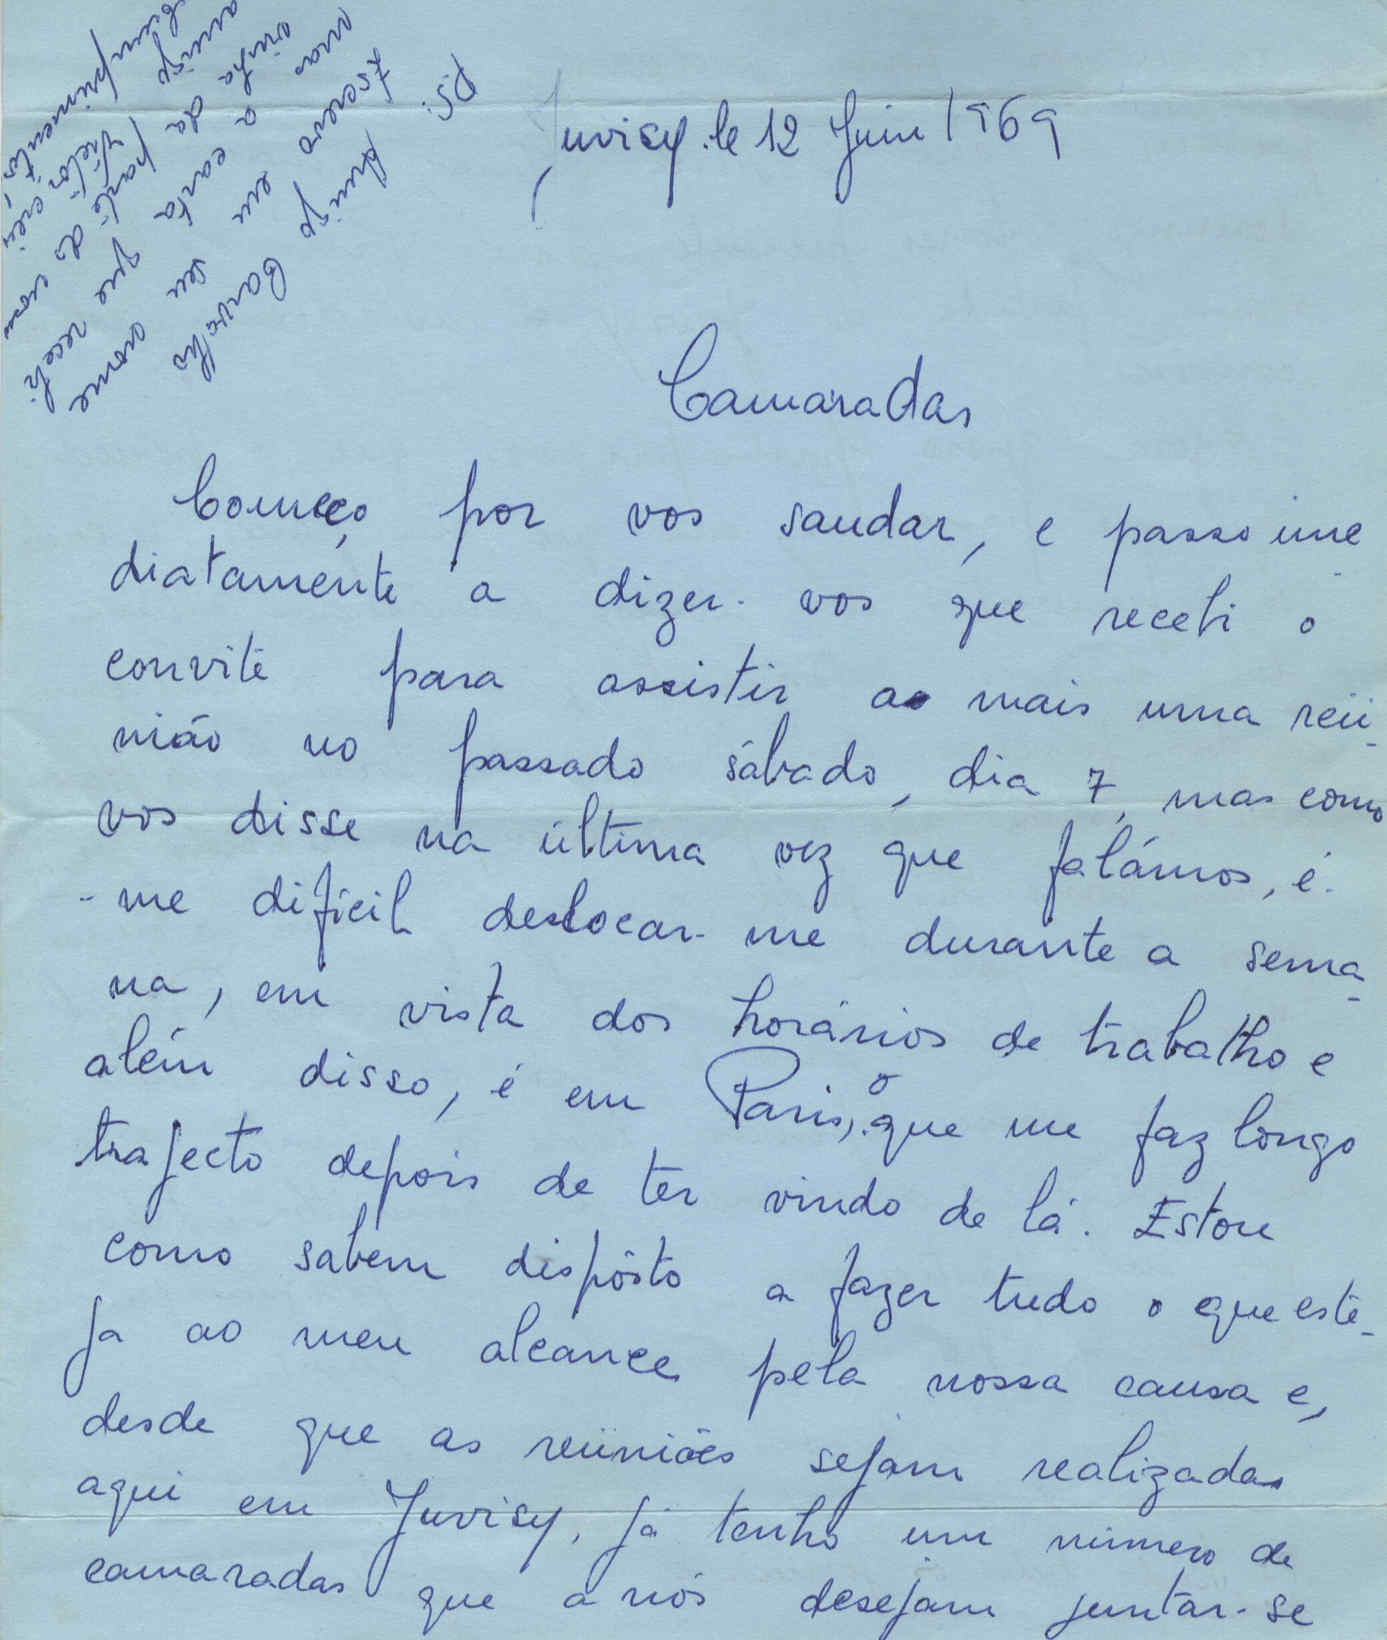 Juvisy le 12 Juin 1969
Camaradas
Começo por vos saudar, e passo ime
diatamente a dizer-vos que recebi o
convite para assistir a mais uma reü_
nião no passado sábado, dia 7, mas como
vos disse na última vez que falámos, é-
-me difícil deslocar-me durante a sema_
na, em vista dos horários de trabalho e
além disso, é em Paris, o que me faz longo
trajecto depois de ter vindo de lá. Estou
como sabem dispôsto a fazer tudo o que este_
ja ao meu alcance pela nossa causa e,
desde que as reüniões sejam realizadas
aqui em Juvisy, já tenho um número de
camaradas que a nós desejam juntar-se
PS: Amigo Carvalho
Escrevo em seu nome
mas a carta que recebi
vinha da parte do nosso
amigo Vitor
Cumprimentos,